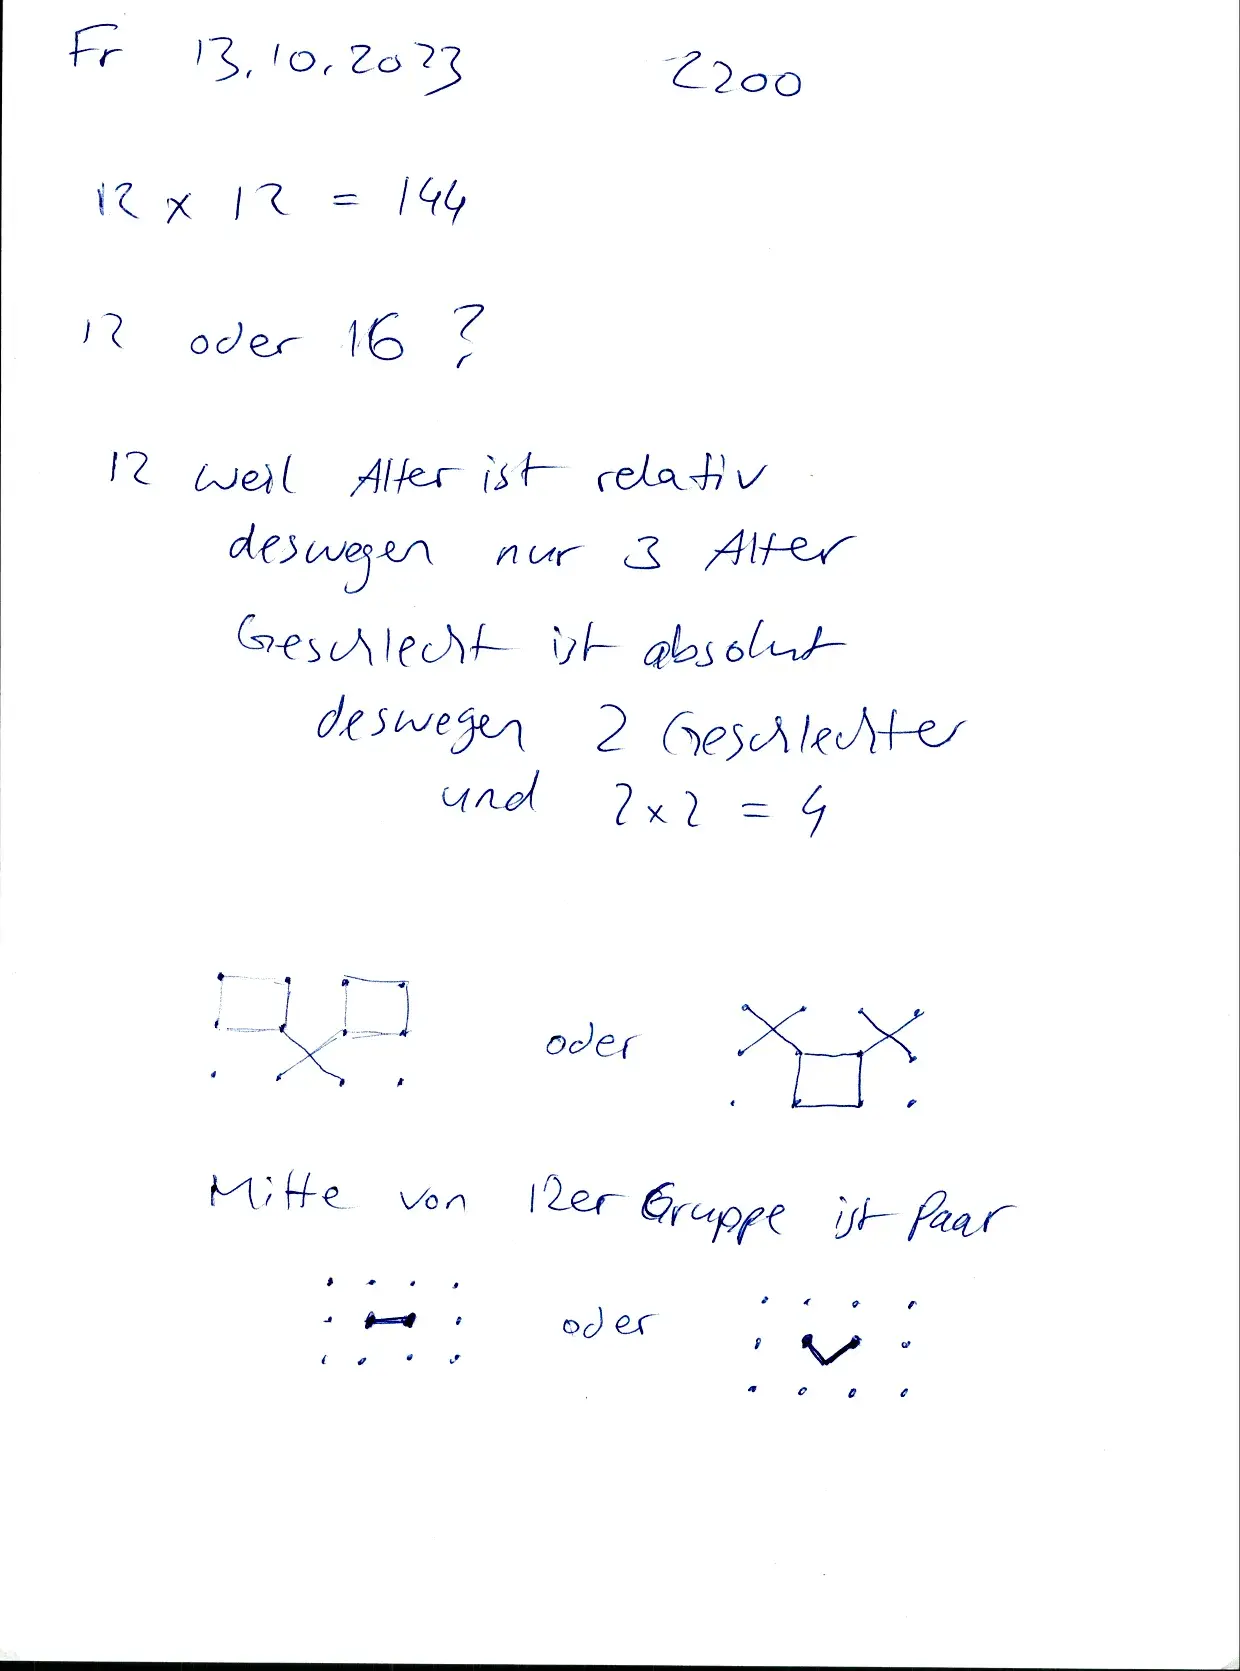 Fr 13.10.2023 2200
12 x 12 = 144
12 oder 16 ?
12 weil Alter ist relativ
deswegen nur 3 Alter
Geschlecht ist absolut
deswegen 2 Geschlechter
und 2x2 = 4
oder
Mitte von 12er Gruppe ist Paar
oder